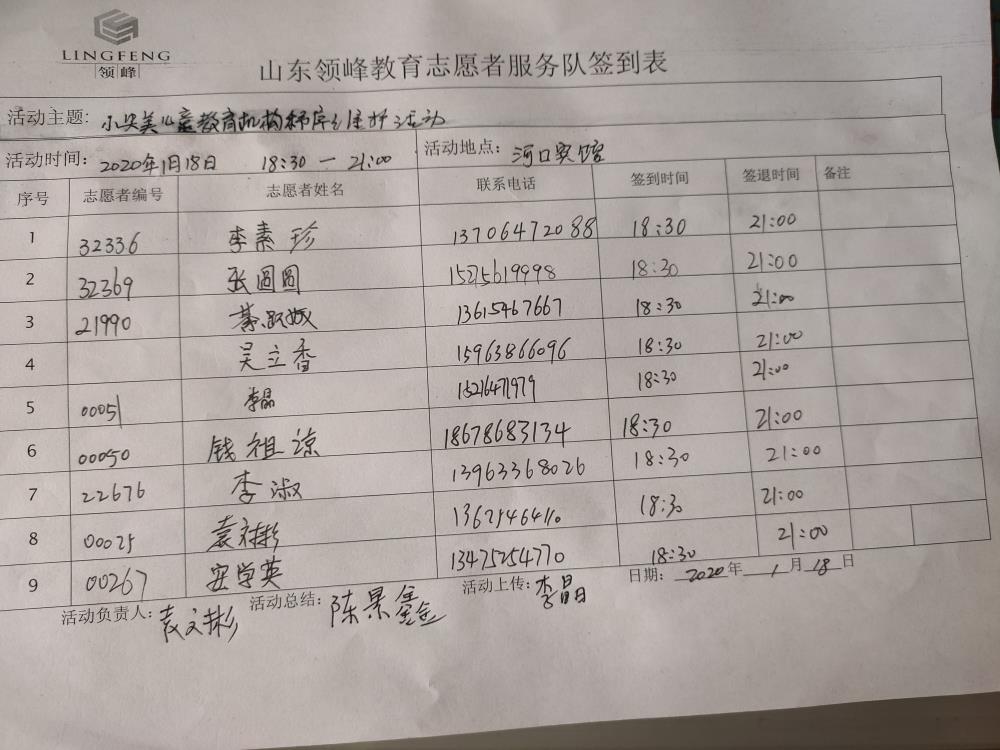 LINGFENG
领峰
山东领峰教育志愿者服务队签到表
活动主题： 小央美儿童教育机构秩序维护活动
活动时间： 2020年1月18日 18:30 — 21:00 活动地点： 河口宾馆
序号 志愿者编号 志愿者姓名 联系电话 签到时间 签退时间 备注
1 32336 李素珍 13706472088 18:30 21:00
2 32369 张圆圆 15215619998 18:30 21:00
3 21990 13615467667 18:30 21:00
4 吴立香 15963866096 18:30 21:00
5 00051 李晶 15216471979 18:30 21:00
6 00050 钱祖谅 18678683134 18:30 21:00
7 22676 李淑 13963368026 18:30 21:00
8 00025 袁彬 18:30 21:00
9 00267 安学英 13475254770 18:30 21:00
活动负责人： 袁文彬 活动总结： 陈景鑫 活动上传： 李晶 日期： 2020 年 1 月 18 日